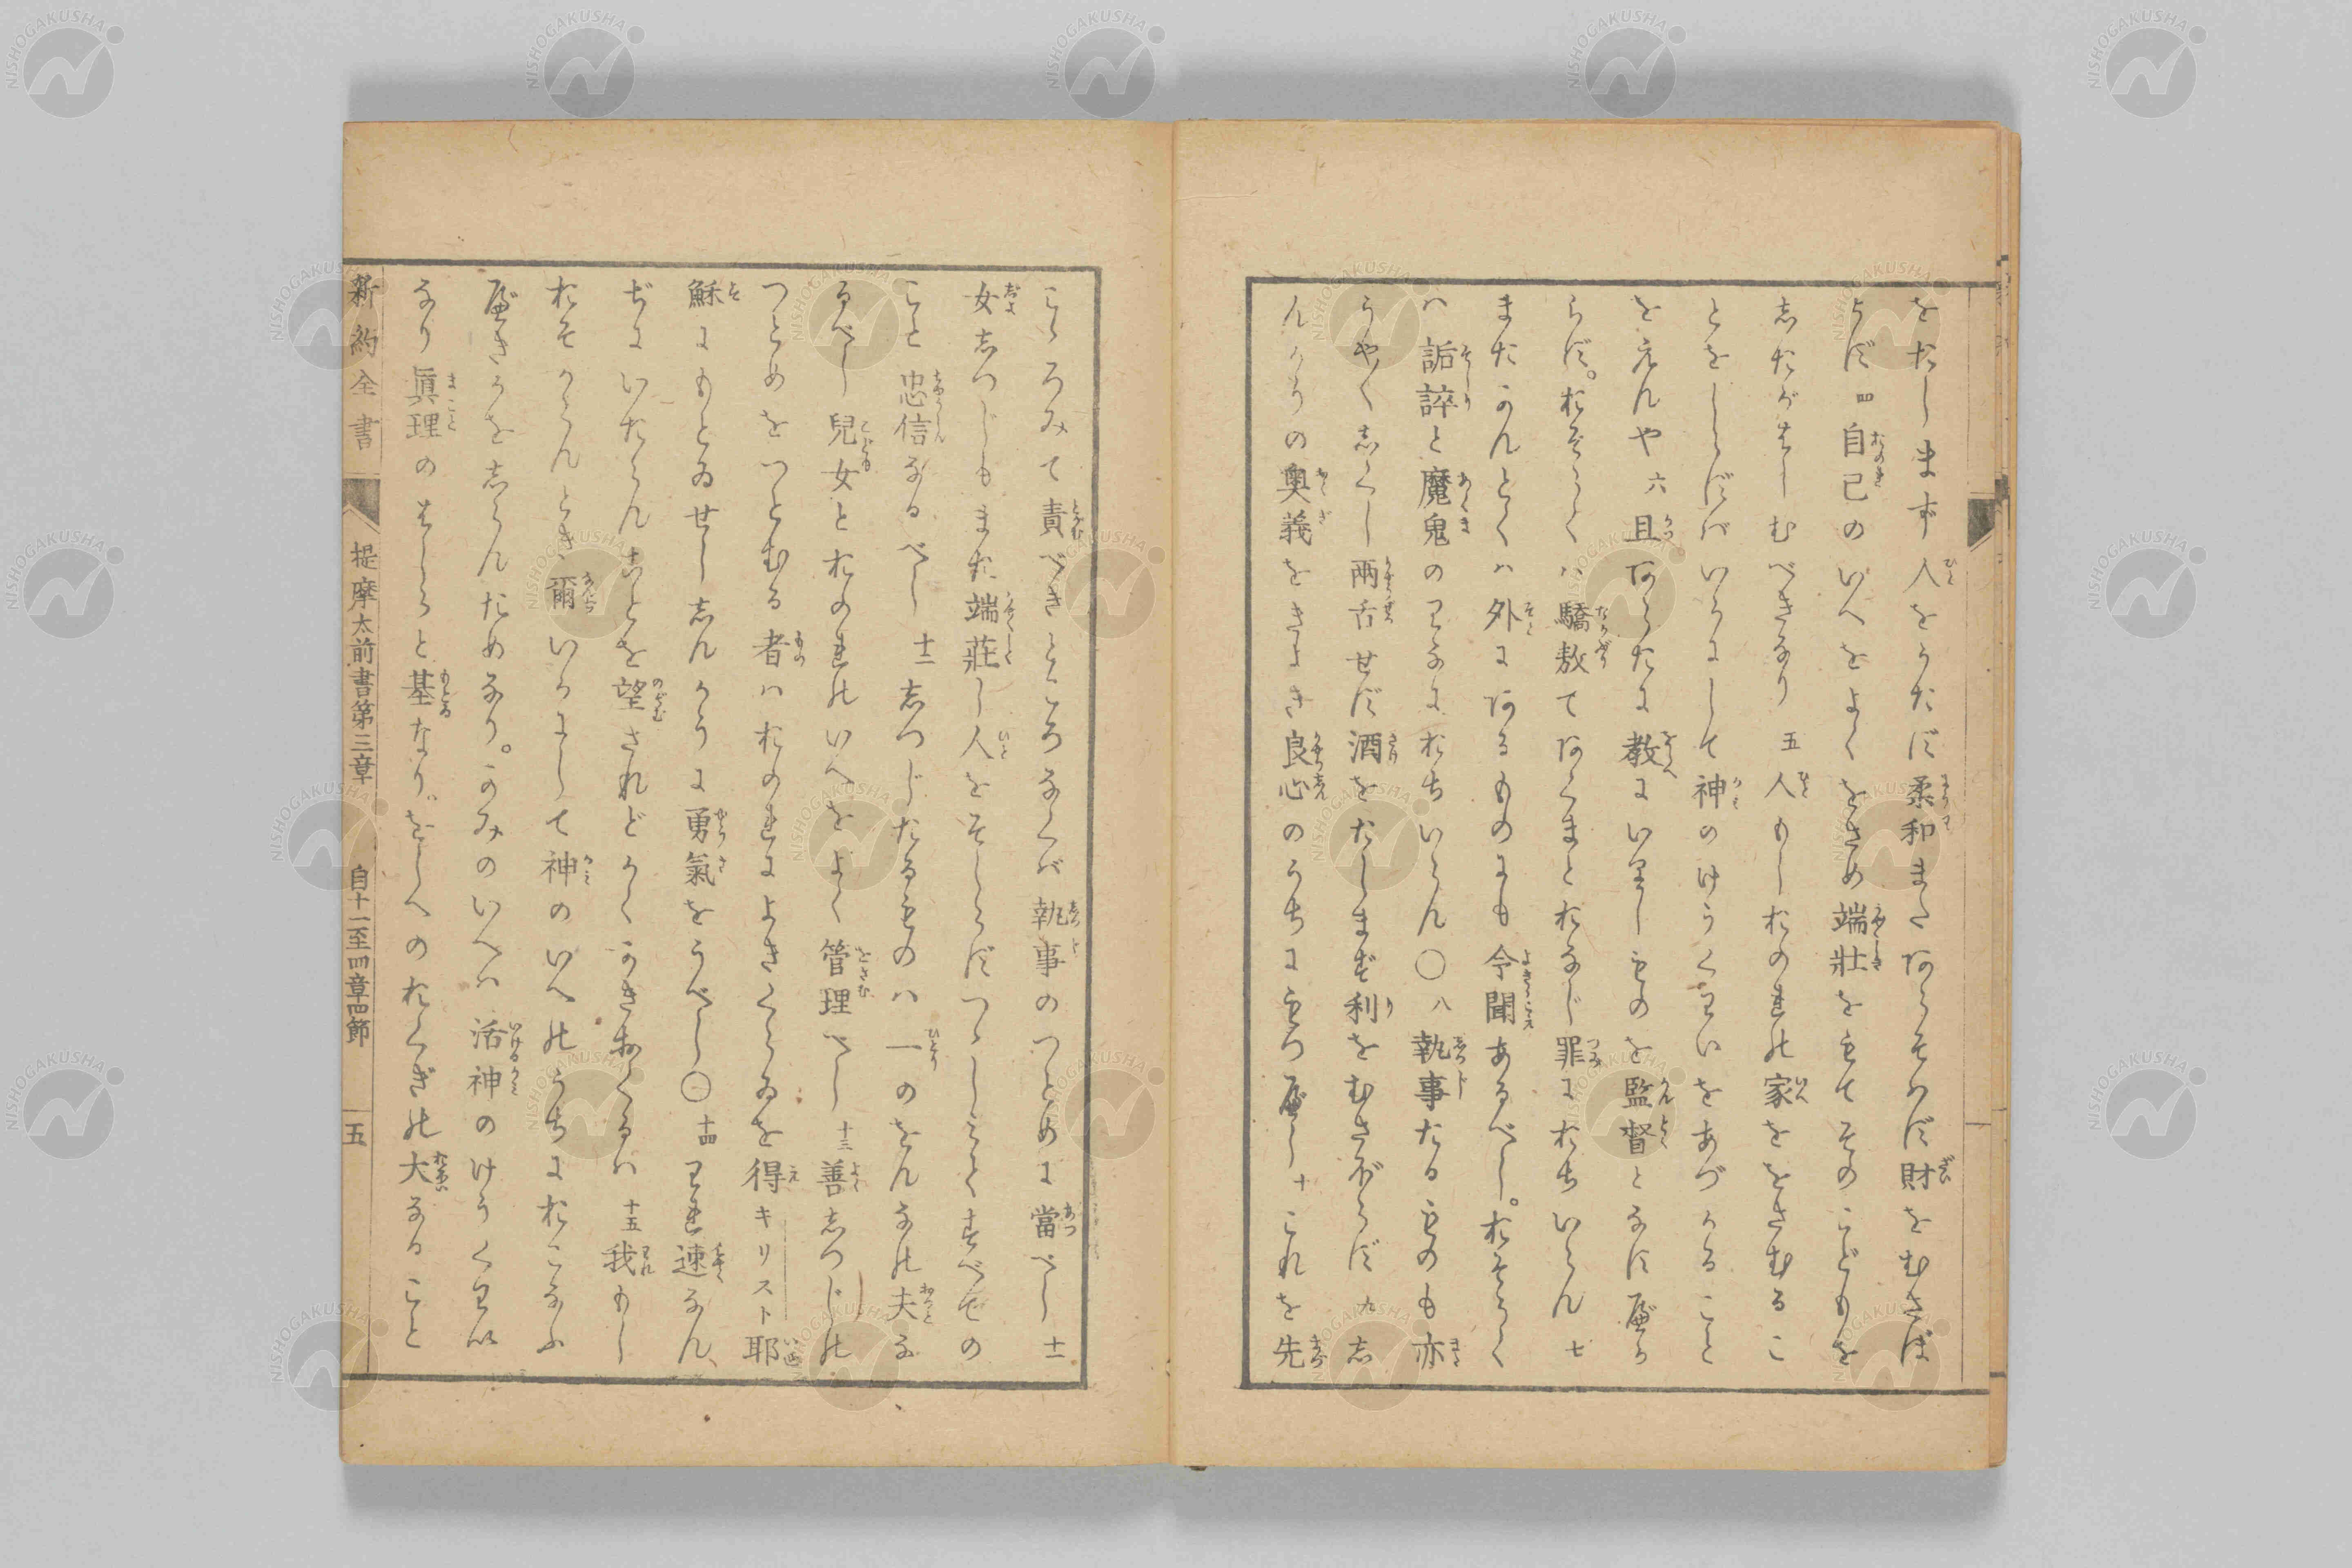 をたしまず人をうたず柔和またあらそはず財をむさぼ
らず四自己のいへをよくをさめ端壯をもてそのこどもを
志たがはしむべきなり五人もしおのれの家ををさむるこ
とをしらずバいかにして神のけうくわいをあづかること
を元んや六且あらたに教にいりしものを監督となす
らず。おそらくハ驕敖てあくまとおなじ罪におちいらん七
またかんとくハ外にあるものにも令聞あるべし。おそらく
ハ詬誶と魔鬼のわなにおちいらん〇八執事たるものも亦
うやくしくし兩舌せず酒をたしまず利をむさぼらず九志
んかうの奧義をきよき良心のうちにもつべし十これを先
こゝろみて責べきところなくバ執事のつとめに當べし十一
女志つじもまた端莊し人をそしらずつゝしみてすべての
こと忠信なるべし十二志つじたるものハ一のをんなの夫な
るべし兒女とおのれのいへをよく管理べし十三善志つじの
つとめをつとむる者ハおのれによきくらゐを得キリスト耶
穌にもとゐせし志んかうに勇氣をうべし〇十四われ速なん
ぢにいたらんことを望されどかくかきおくるハ十五我もし
おそからんとき爾いかにして神のいへのうちにおこなふ
べきかを志らんためなり。かみのいへハ活神のけうくわい
なり眞理のはしらと基なり十六をしへのおくぎの大なること
新約全書 提摩太前書第三章 自十一至四章四節 五
NISHOGAKUSHA